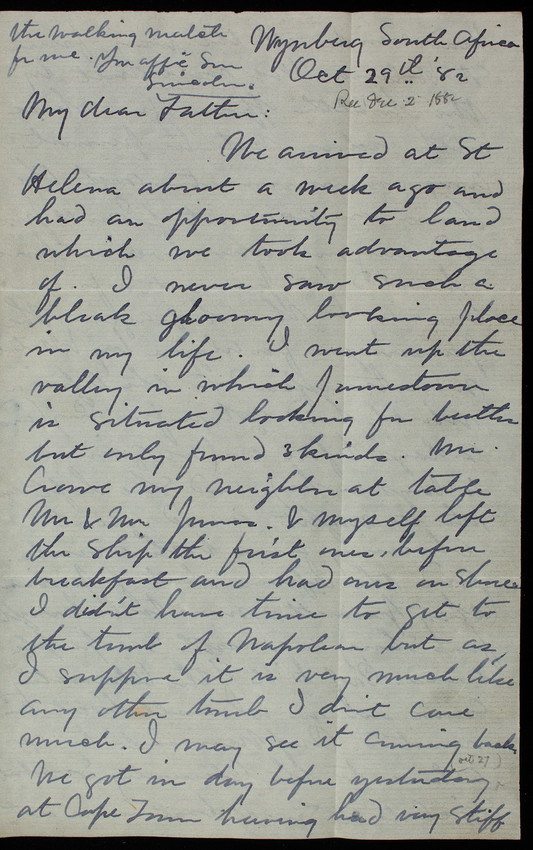 the walking match
for me. Your affte Son
Lincoln.
Wynberg South Africa
Oct 29th '82
Rec Dec 2 1882
My dear Father:
We arrived at St
Helena about a week ago and
had an opportunity to land
which we took advantage
of. I never saw such a
bleak gloomy looking place
in my life. I went up the
valley in which Jamestown
is situated looking for beetles
but only found 3 kinds. Mr.
Crowe my neighbor at table
Mr & Mrs & myself left
the ship the first ones, before
breakfast and had ours on shore
I didn't have time to get to
the tomb of Napoleon but as
I suppose it is very much like
any other tomb I didn't care
much. I may see it coming back.
(Oct 27)
We got in day before yesterday
at Cape Town having had very stiff